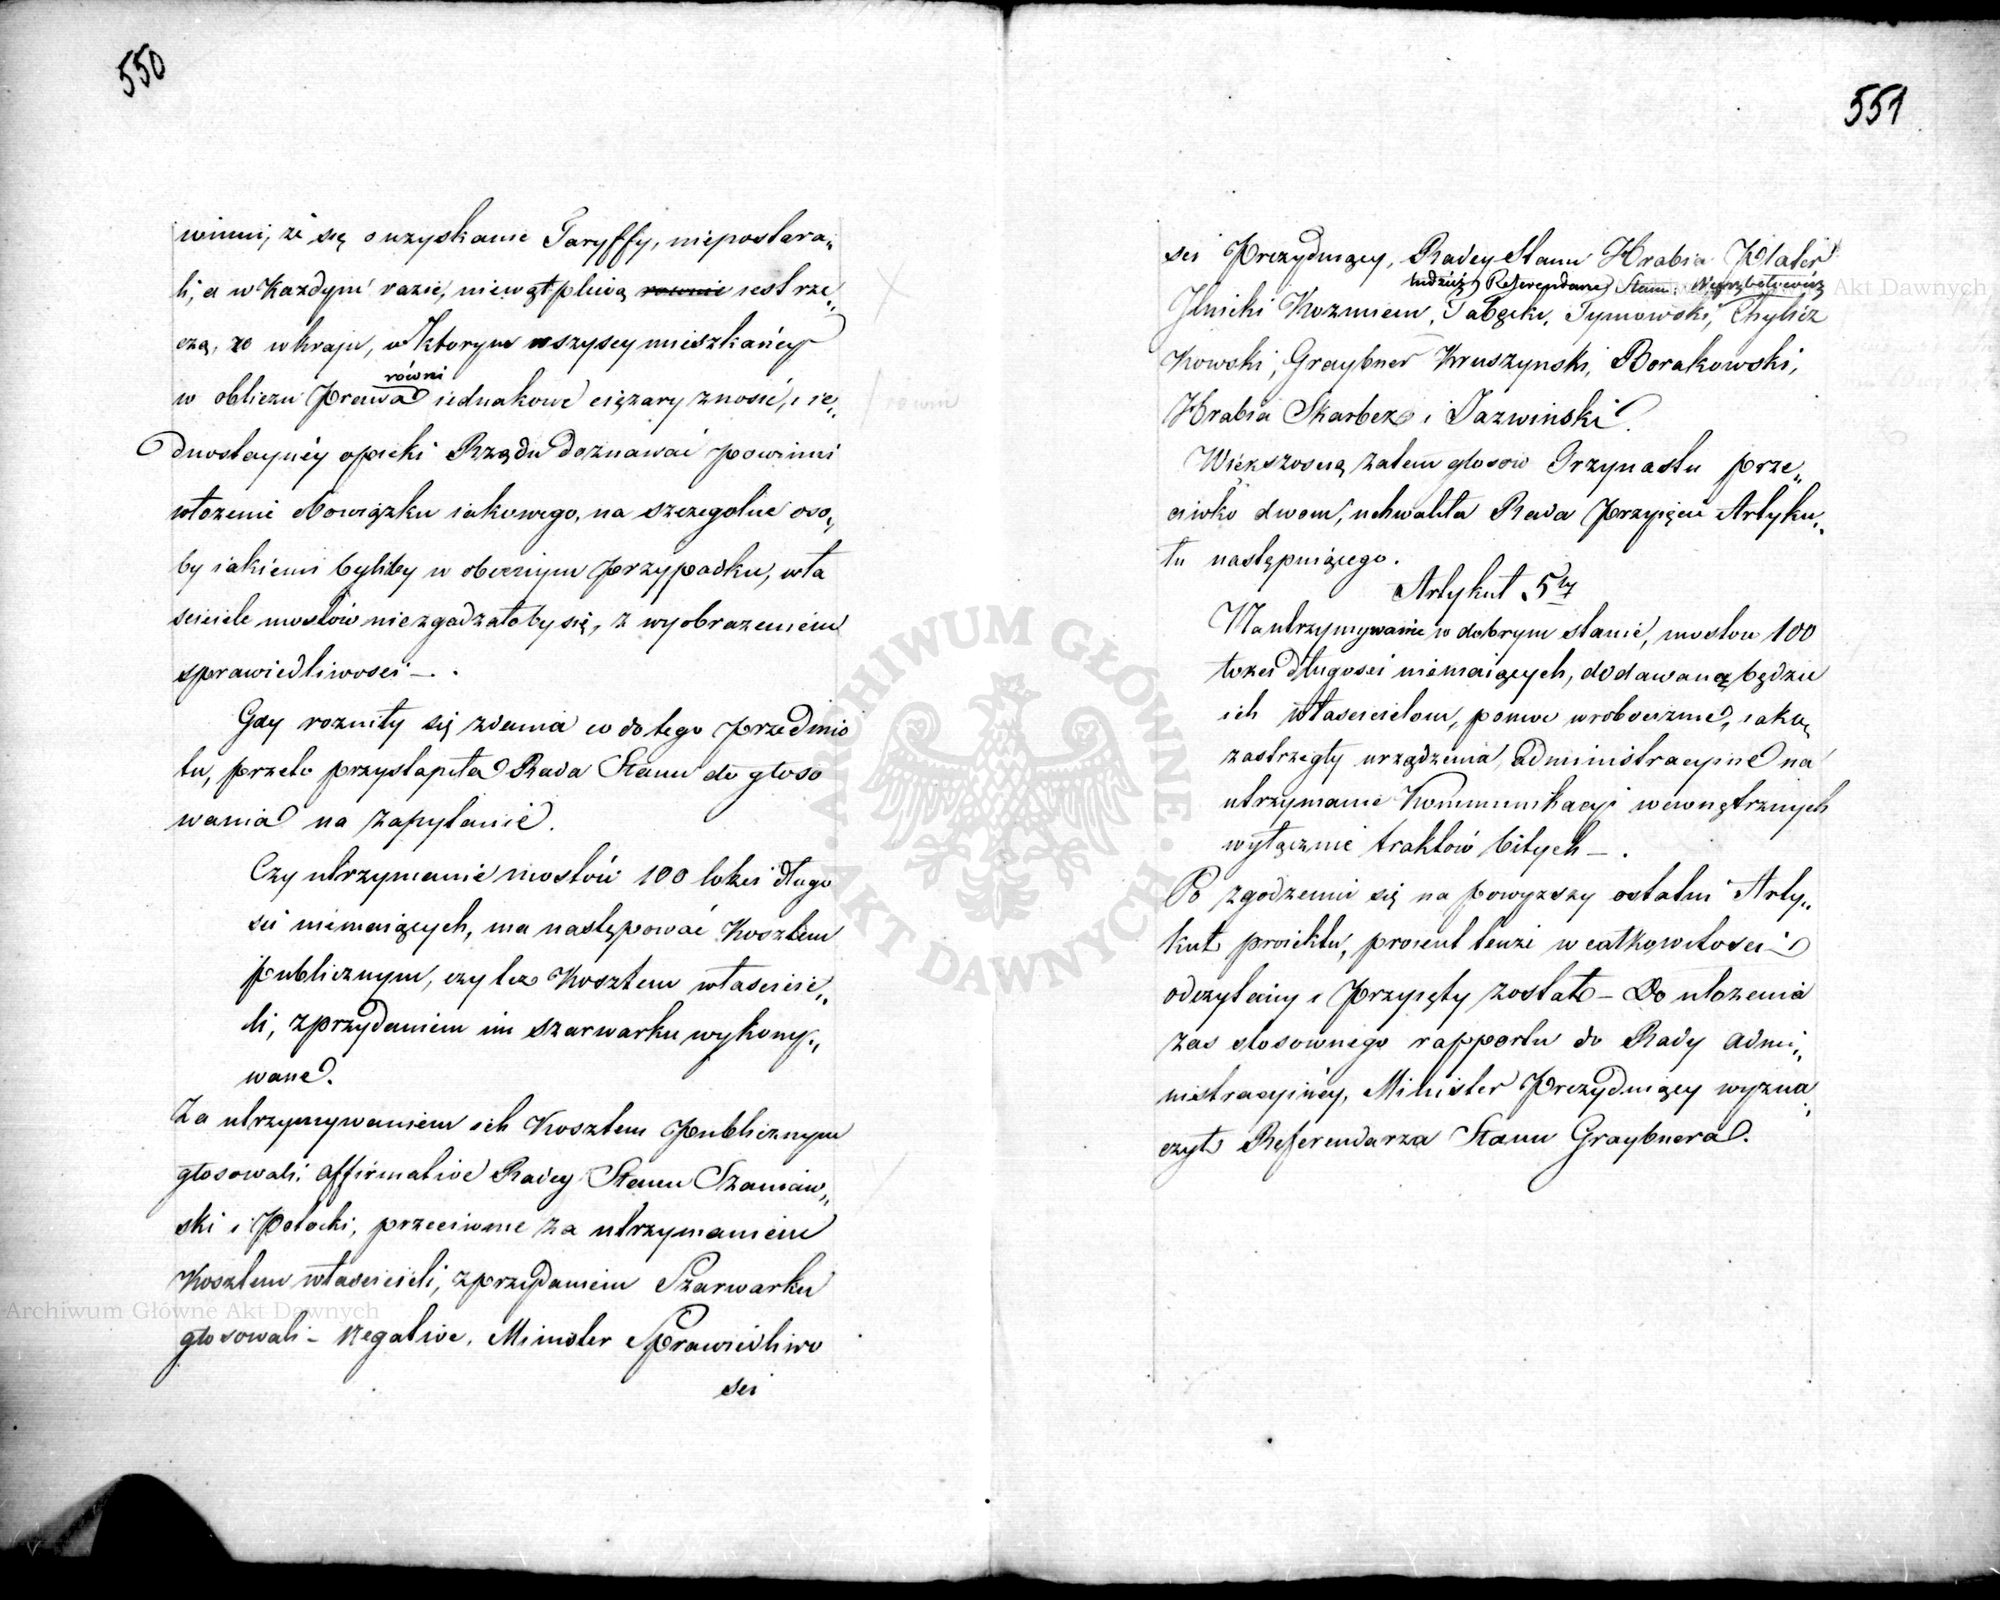 550
winni, że się o uzyskanie Taryffy, niepostara„
li, a w każdym razie, niewątpliwą rownie iest rze„
czą, że w kraju, w ktorym wszyscy mieszkańcy
równi
w obliczu Prawa iednakowe ciężary znosić, i ie„
dnostayney opieki Rządu doznawać powinni
włożenie obowiązku iakowego, na szczegolne oso„
by iakiemi byliby w obecnym przypadku, wła
sciciele mostów niezgadzałoby się, z wyobrażeniem
sprawiedliwosci – .
Gdy rozniły się zdania co do tego przedmio
tu, przeto przystąpiła Rada Stanu do głoso
wania na zapytanie.
Czy utrzymanie mostów 100 łokci długo
sci niemaiących, ma następować kosztem
publicznym, czy też kosztem właścicie„
li, z przydaniem im szarwarku wykony„
wane.
Za utrzymywaniem ich kosztem publicznym
głosowali affirmative Radcy Stanu Szaniaw„
ski i Potocki, przeciwnie za utrzymaniem
kosztem właścicieli, z przydaniem Szarwarku
głosowali – Negative, Minister Sprawiedliwo
sci
rowni
551
sci Prezyduiący, Radcy Stanu Hrabia Plater
tudzież Referendarze Stanu:
Ilnicki Kozmian, Tabęcki, Tymowski, Chylicz
kowski, Graybner Kruszynski, Borakowski,
Hrabia Skarbek i Jazwiński.
Większoscią zatem głosow Trzynastu prze„
ciwko dwom, uchwaliła Rada Przyięcie Artyku„
łu następuiącego.
Artykuł 5ty
Na utrzymywanie w dobrym stanie, mostow 100
łokci długosci niemaiących, dodawaną będzie
ich właścicielom, pomoc w robociznie, iaką
zastrzegły urządzenia administracyine na
utrzymanie Kommunikacyi wewnętrznych
wyłącznie traktów bitych – .
Po zgodzeniu się na powyższy ostatni Arty„
kuł proiektu, proient tenże w całkowitosci
odczytany i Przyięty został – Do ułożenia
zas stosownego rapportu do Rady Admi„
nistracyiney, Minister Prezyduiący wyzna„
czył Referendarza Stanu Graybnera.
ARCHIWUM GŁÓWNE AKT DAWNYCH
Archiwum Główne Akt Dawnych
Archiwum Główne Akt Dawnych